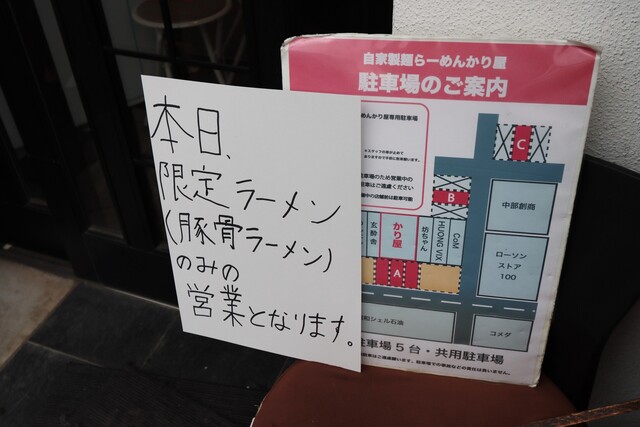 本日、
限定ラーメン
(豚骨ラーメン)
のみの
営業となります。
自家製麺らーめんかり屋
駐車場のご案内
めんかり屋専用駐車場
C
B
A
中部創商
ローソン
ストア
100
コメダ
玄齢舎
かり屋
坊ちゃん
HUONG VIX
CoM
シェル石油
車場5台・共用駐車場